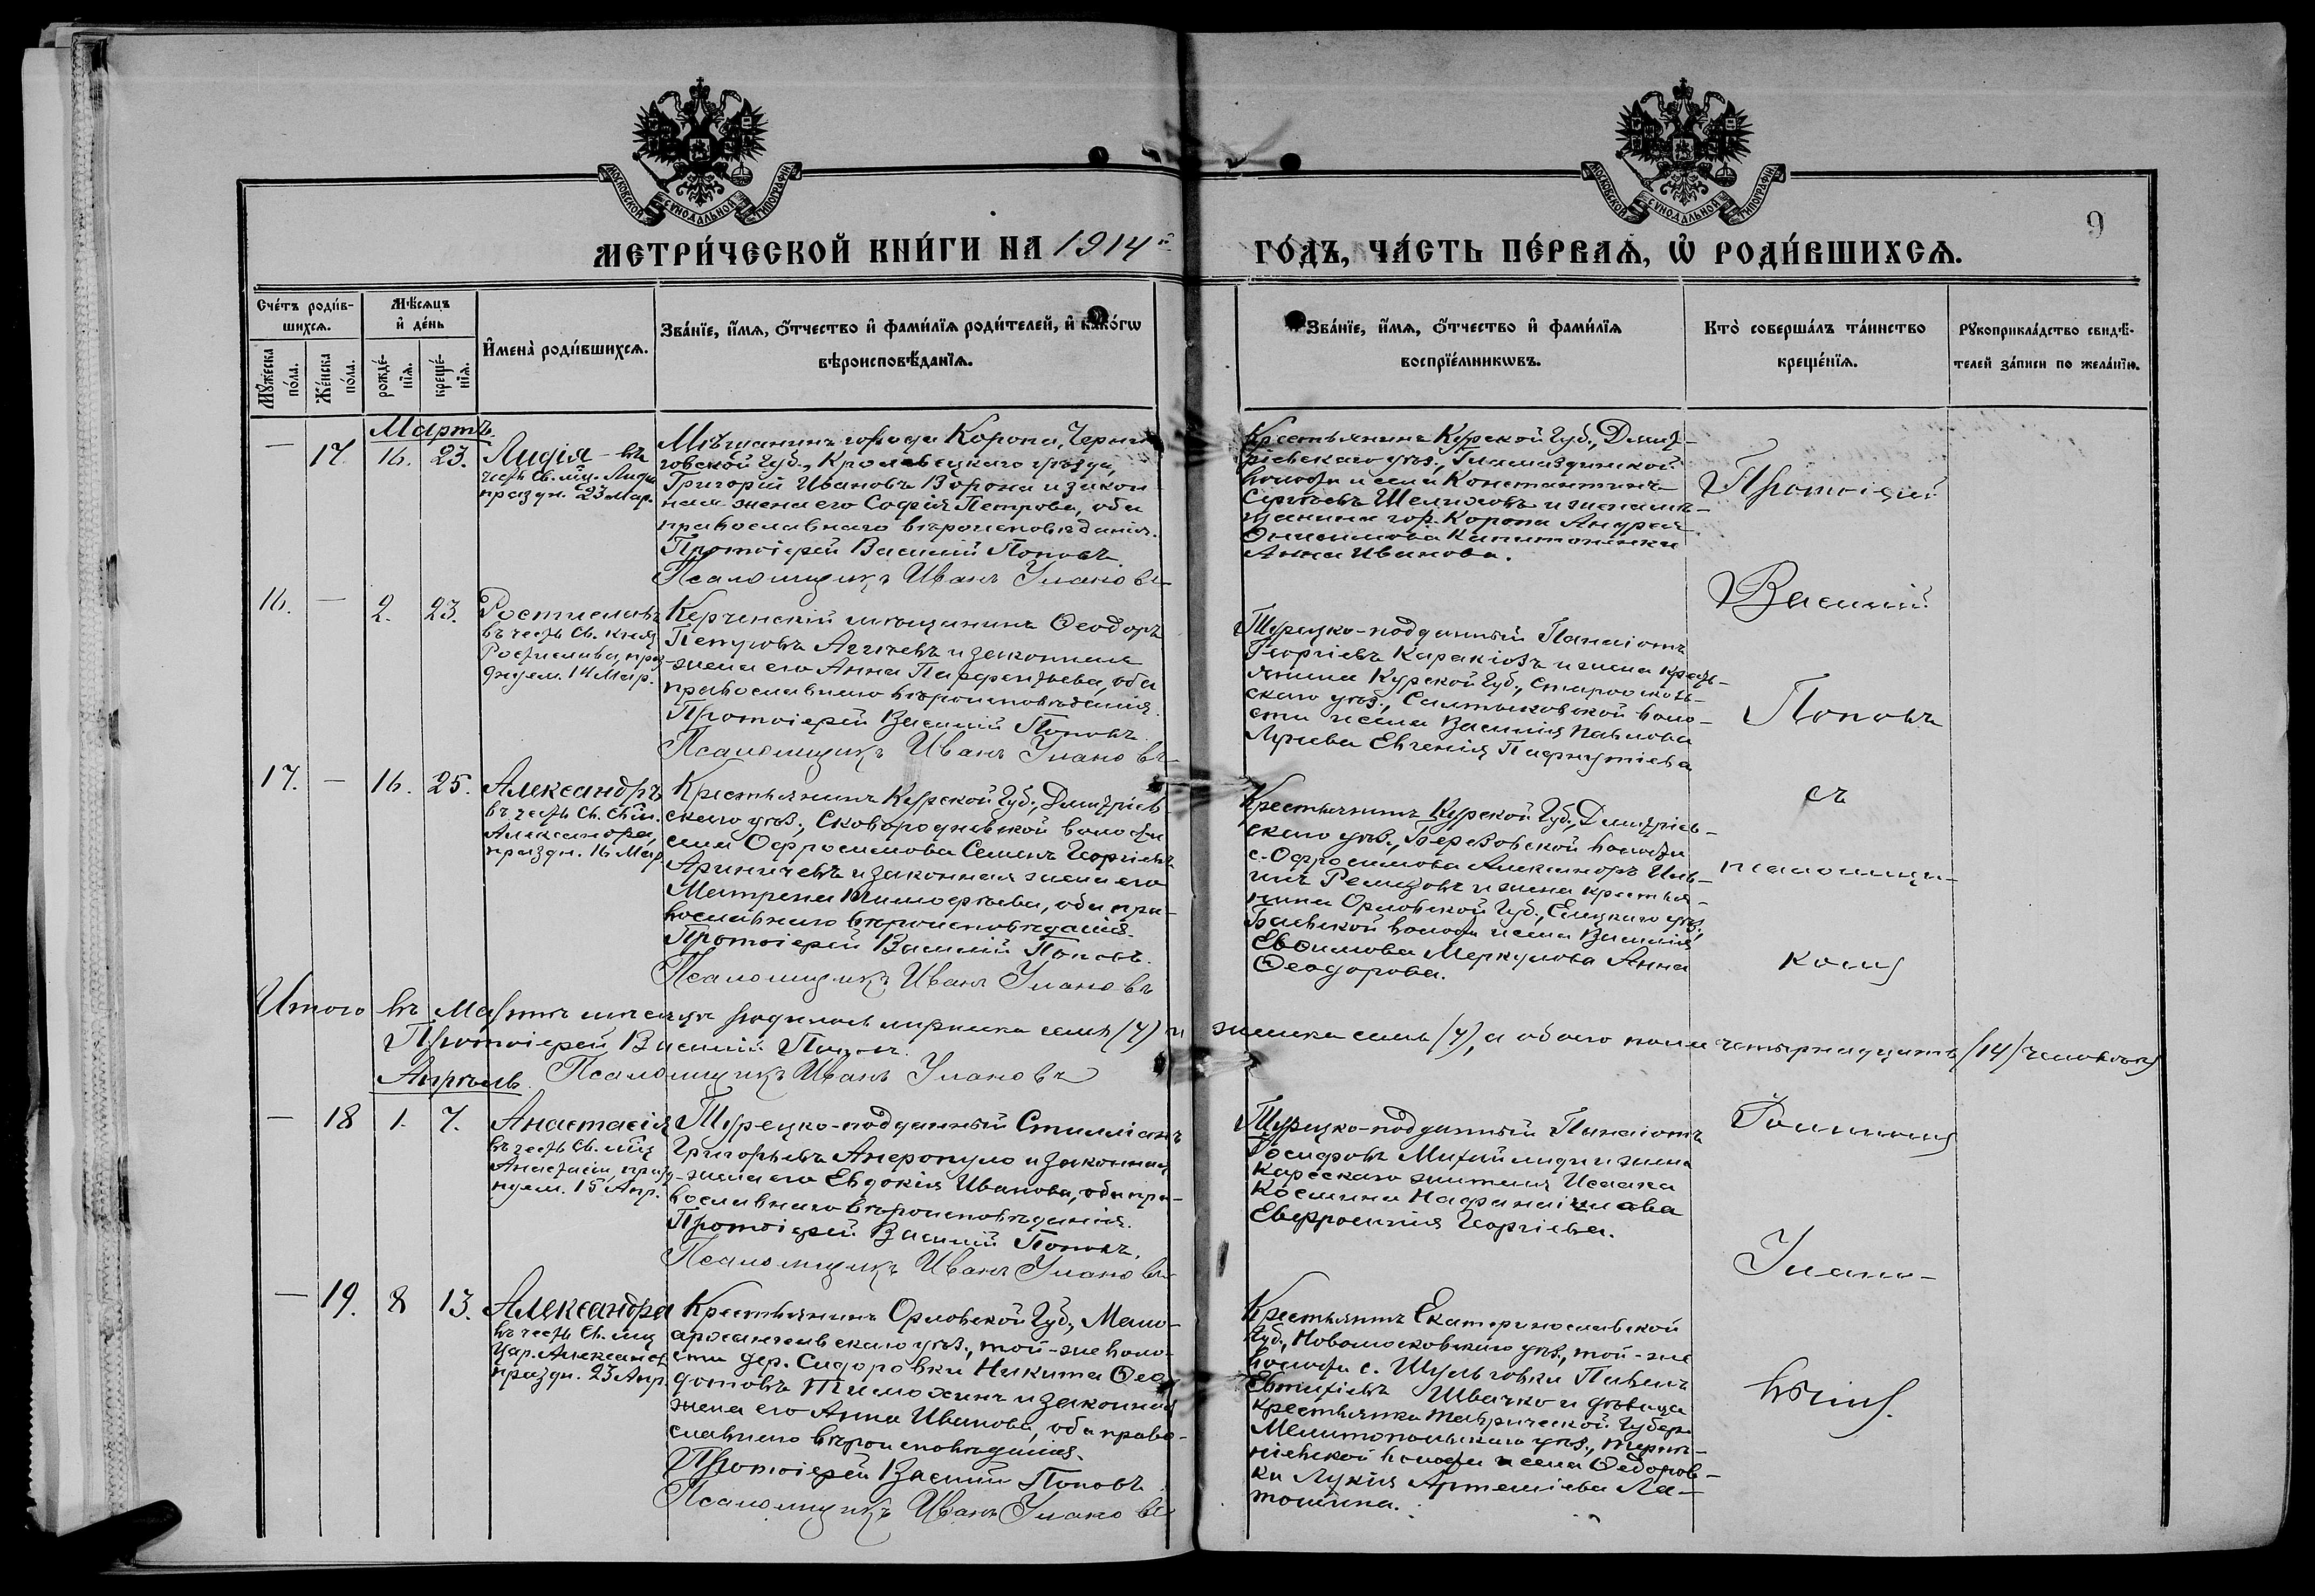 МОСКОВСКОЙ СУНОДАЛЬНОЙ ТИПОГРАФІИ
МОСКОВСКОЙ СУНОДАЛЬНОЙ ТИПОГРАФІИ
9
МЕТРИ́ЧЕСКОЙ КНИ́ГИ НА 1914й
ГО́ДЪ, ЧА́СТЬ ПЕ́РВАѦ, Ѡ҆ РОДИ́ВШИХСѦ.
Сче́тъ роди́в-
шихсѧ.
Мѣ́сѧцъ
и҆ де́нь
Мꙋ́жеска по́ла.
Же́нска по́ла.
рожде́-
нїѧ.
креще́-
нїѧ.
И҆мена̀ роди́вшихсѧ.
Зва́нїе, и҆́мѧ, ѻ҆́тчество и҆ фами́лїѧ роди́телей, и҆ како́гѡ
вѣроисповѣ́данїѧ.
Зва́нїе, и҆́мѧ, ѻ҆́тчество и҆ фами́лїѧ
воспрїе́мникѡвъ.
Кто̀ соверша́лъ та́инство
креще́нїѧ.
Рꙋкоприкла́дство свидѣ́-
телей за́писи по жела́нїю.
Мартъ.
— 17. 16. 23.
Лидія - въ
честь Св. мц. Лидіи
праздн. 23 Мар.
Мѣщанинъ города Коропа, Черни-
говской Губ., Кролевецкаго уѣзда,
Григорій Ивановъ Ворона и закон
ная жена его Софія Петрова, оба
православнаго вѣроисповѣданія.
Протоіерей Василій Поповъ.
Псаломщикъ Иванъ Улановъ
Крестьянинъ Курской Губ., Дмит-
ріевскаго уѣз.,
волости и села Константинъ
Сергѣевъ Шелиховъ и жена мѣ-
щанина гор. Коропа Андрея
Онисимова
Анна Иванова.
16. — 2. 23.
Ростиславъ
въ честь Св. князя
Ростислава, праз
днуем. 14 Мар.
Керченскій мѣщанинъ Ѳеодоръ
Петровъ и законная
жена его Анна Парфентьева, оба
православнаго вѣроисповѣданія.
Протоіерей Василій Поповъ.
Псаломщикъ Иванъ Улановъ
Турецко-подданный Панаіотъ
Георгіевъ Каракіозъ и жена крест-
янина Курской Губ., Старооскол-
скаго уѣз., Салтыковской воло-
сти и села Василія Павлова
Лунева Евгенія Пафнутіева
17. — 16. 25.
Александръ
въ честь Св. Свящ.
Александра,
праздн. 16 Мар.
Крестьянинъ Курской Губ., Дмитріев
скаго уѣз., Сковородневской волости
села Офросимова Семенъ Георгіевъ
Ариничевъ и законная жена его
Матрена Тимофѣева, оба пра-
вославнаго вѣроисповѣданія.
Протоіерей Василій Поповъ.
Псаломщикъ Иванъ Улановъ
Крестьянинъ Курской Губ., Дмитріев-
скаго уѣз., Березовской волости
с. Офросимова Александръ Иль-
инъ Ремизовъ и жена крестья-
нина Орловской Губ., Елецкаго уѣз.,
волости и села Василія
Евѳимова Меркулова Анна
Ѳеодорова.
Протоіерей
Василій
Поповъ
съ
псаломщи-
комъ
Итого въ Мартѣ мѣсяцѣ родилось мужеска семь (7) и женска семь (7), а обоего пола четырнадцать (14) человѣкъ
Протоіерей Василій Поповъ.
Псаломщикъ Иванъ Улановъ
Апрѣль
— 18 1. 7.
Анастасія
въ честь Св. мц.
Анастасіи, празд
нуем. 15 Апр.
Турецко-подданный Стиліанъ
Григорьевъ Анеропуло и законная
жена его Евдокія Иванова, оба пра-
вославнаго вѣроисповѣданія.
Протоіерей Василій Поповъ.
Псаломщикъ Иванъ Улановъ
Турецко-подданный Панаіотъ
Іосифовъ и жена
Карсскаго жителя Исаака
Космина
Евфросинія Георгіева.
— 19. 8 13.
Александра
въ честь Св. мц.
Цар. Александ.
праздн. 23 Апр.
Крестьянинъ Орловской Губ., Мало-
архангельскаго уѣз., той-же воло-
сти дер. Сидоровки Никита Ѳео
дотовъ Тимохинъ и законная
жена его Анна Иванова, оба право-
славнаго вѣроисповѣданія.
Протоіерей Василій Поповъ.
Псаломщикъ Иванъ Улановъ
Крестьянинъ Екатеринославской
Губ., Новомосковскаго уѣз., той-же
волости с. Шульговки Павелъ
Евтихіевъ Швачко и дѣвица
крестьянка Таврической Губер.
Мелитопольскаго уѣз., Терпѣ-
ніевской волости и села Ѳедоров-
ки Лукія Артеміева Ла-
тошина.
Іоанномъ
Улано-
вымъ.